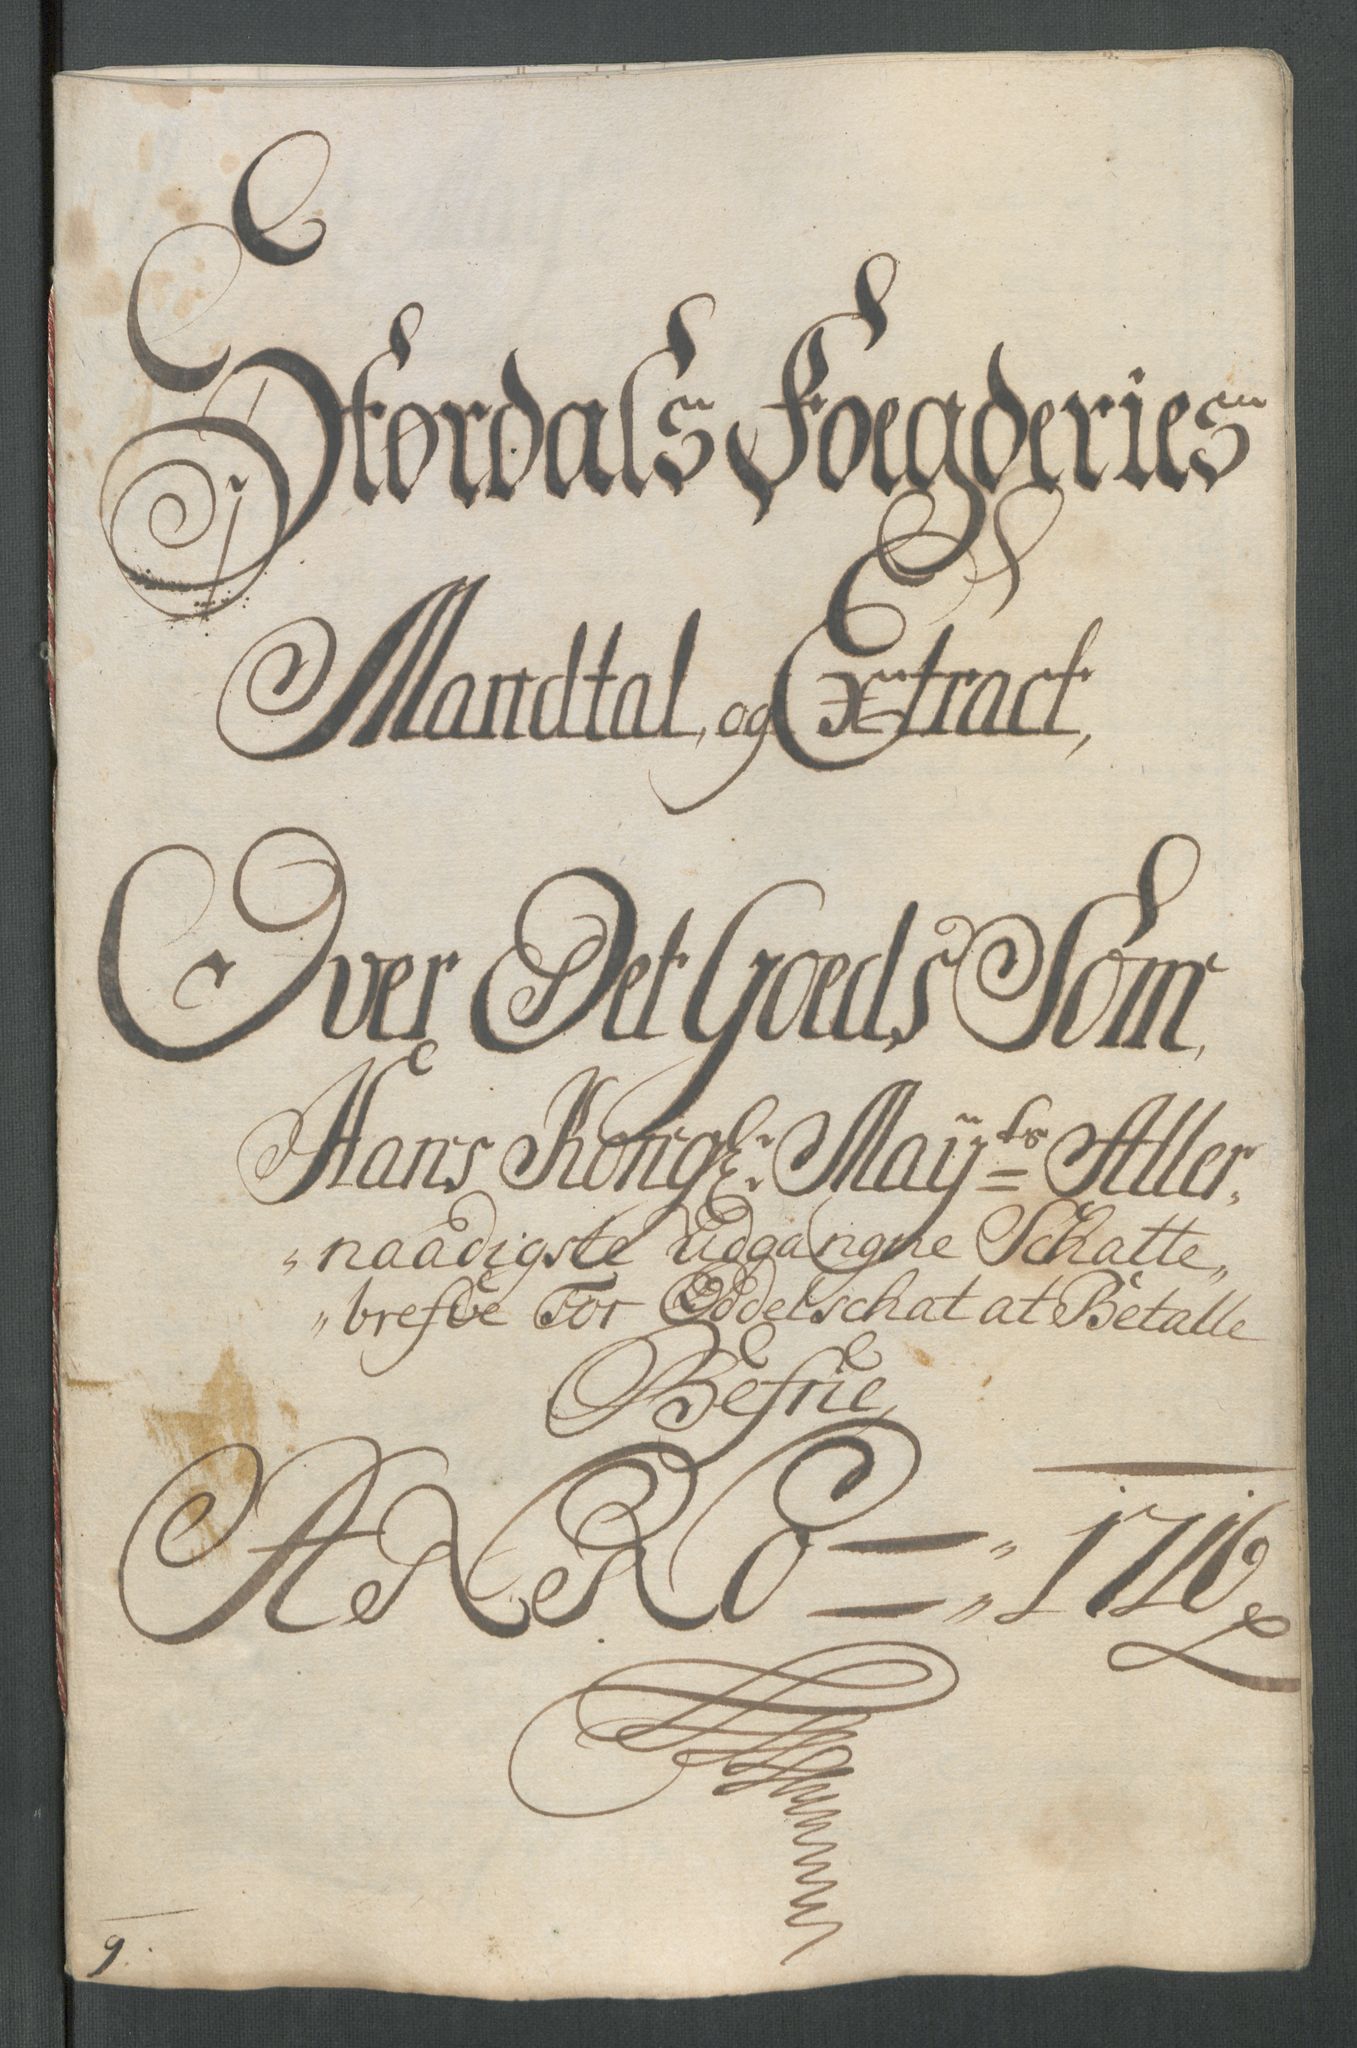 Størdals Foegderies
Mandtal, og Extract,
Over Det Goeds Som,
Hans Kongl: Maÿts Aller„
„naadigste Udgangne Schatte„
„brefve For Oddelschat at Betalle
Befrie,
ANNO — „ 1716
9.